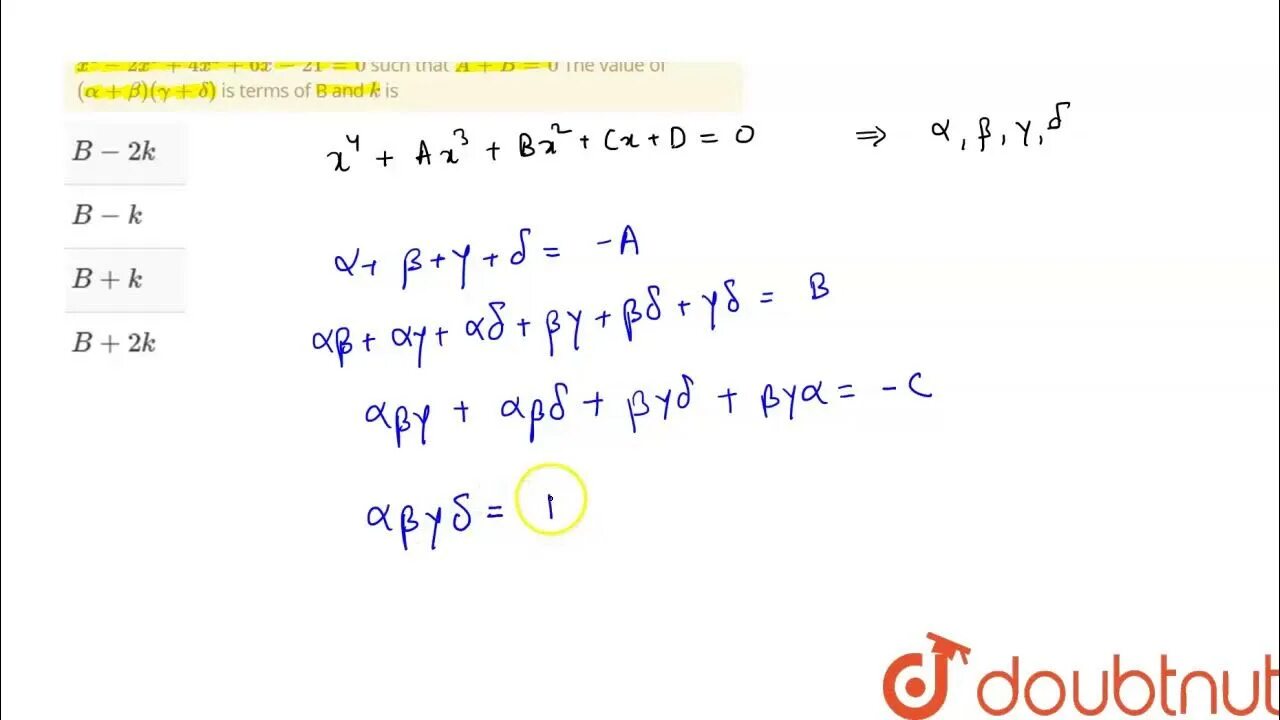 x⁴ − 2x³ + 4x² + 6x − 21 = 0 such that A + B = 0 The value of
(α + β)(γ + δ) is terms of B and k is
B − 2k
B − k
B + k
B + 2k
x⁴ + Ax³ + Bx² + Cx + D = 0 ⇒ α, β, γ, δ
α + β + γ + δ = −A
αβ + αγ + αδ + βγ + βδ + γδ = B
αβγ + αβδ + βγδ + βγα = −C
αβγδ =
doubtnut